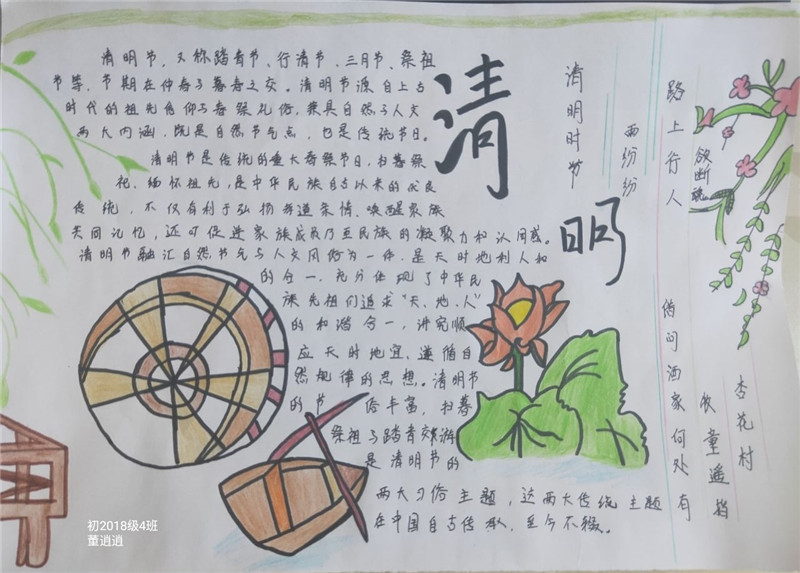 清明节,又称踏青节、行清节、三月节、祭祖
节等,节期在仲春与暮春之交。清明节源自上古
时代的祖先信仰与春祭礼俗,兼具自然与人文
两大内涵,既是自然节气点,也是传统节日。
清明节是传统的重大春祭节日,扫墓祭
祀、缅怀祖先,是中华民族自古以来的优良
传统,不仅有利于弘扬孝道亲情、唤醒家族
共同记忆,还可促进家族成员乃至民族的凝聚力和认同感。
清明节融汇自然节气与人文风俗为一体,是天时地利人和
的合一,充分体现了中华民
族先祖们追求“天、地、人”
的和谐合一,讲究顺
应天时地宜、遵循自
然规律的思想。清明节
的节俗丰富,扫墓
祭祖与踏青郊游
是清明节的
两大习俗主题,这两大传统主题
在中国自古传承,至今不辍。
清明
清明时节
雨纷纷
路上行人
欲断魂
借问酒家何处有
牧童遥指
杏花村
初2018级4班
董逍逍